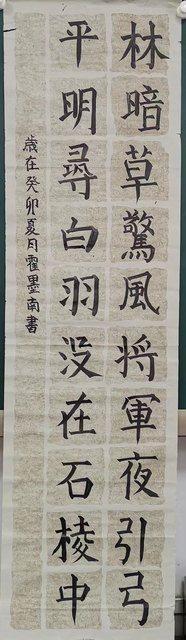 林暗草驚風将軍夜引弓
平明尋白羽没在石棱中
歲在癸卯夏月霍墨南書